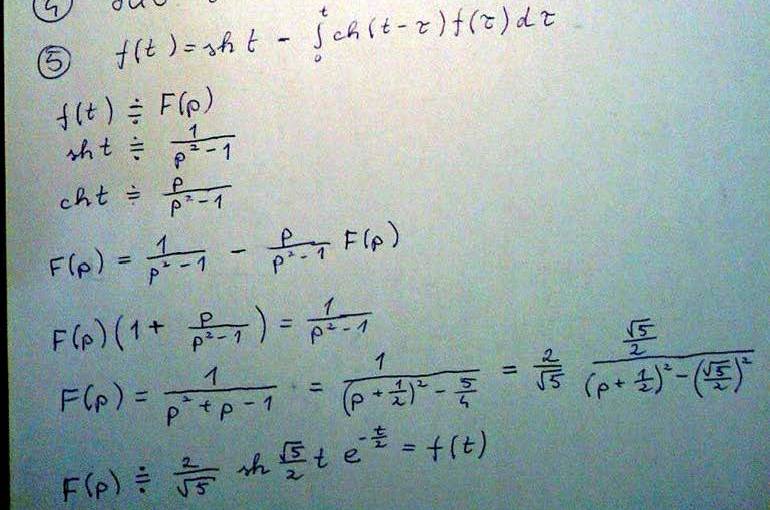 ⑤ f(t) = sh t - ∫₀ᵗ ch(t-τ) f(τ) dτ
f(t) ≑ F(p)
sh t ≑ 1/(p²-1)
ch t ≑ p/(p²-1)
F(p) = 1/(p²-1) - p/(p²-1) F(p)
F(p)(1 + p/(p²-1)) = 1/(p²-1)
F(p) = 1/(p²+p-1) = 1/((p+1/2)² - 5/4) = 2/√5 (√5/2)/((p+1/2)² - (√5/2)²)
F(p) ≑ 2/√5 sh √5/2 t e^(-t/2) = f(t)